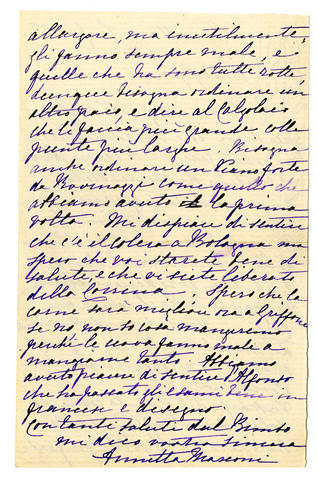 allargare, ma inutilmente,
gli fanno sempre male, e
quelle che ha sono tutte rotte,
dunque bisogna ordinare un
altro paio, e dire al Calzolaio
che li faccia più grande colle
punte più larghe. Bisogna
anche ordinare un Piano forte
da come quello che
abbiamo avuto la prima
volta. Mi dispiace di sentire
che c'è il colera a Bologna ma
spero che voi starete bene di
salute, e che vi siete liberato
della. Spero che la
carne sarà migliore ora a Griffone
se no non so cosa mangeremo
perchè le uova fanno male a
mangiarne tanto. Abbiamo
avuto piacere di sentire Alfonso
che ha passato gli esami bene in
francese e disegno
Con tanti saluti dal Bimbo
mi dico vostra sincera
Annetta Masconi